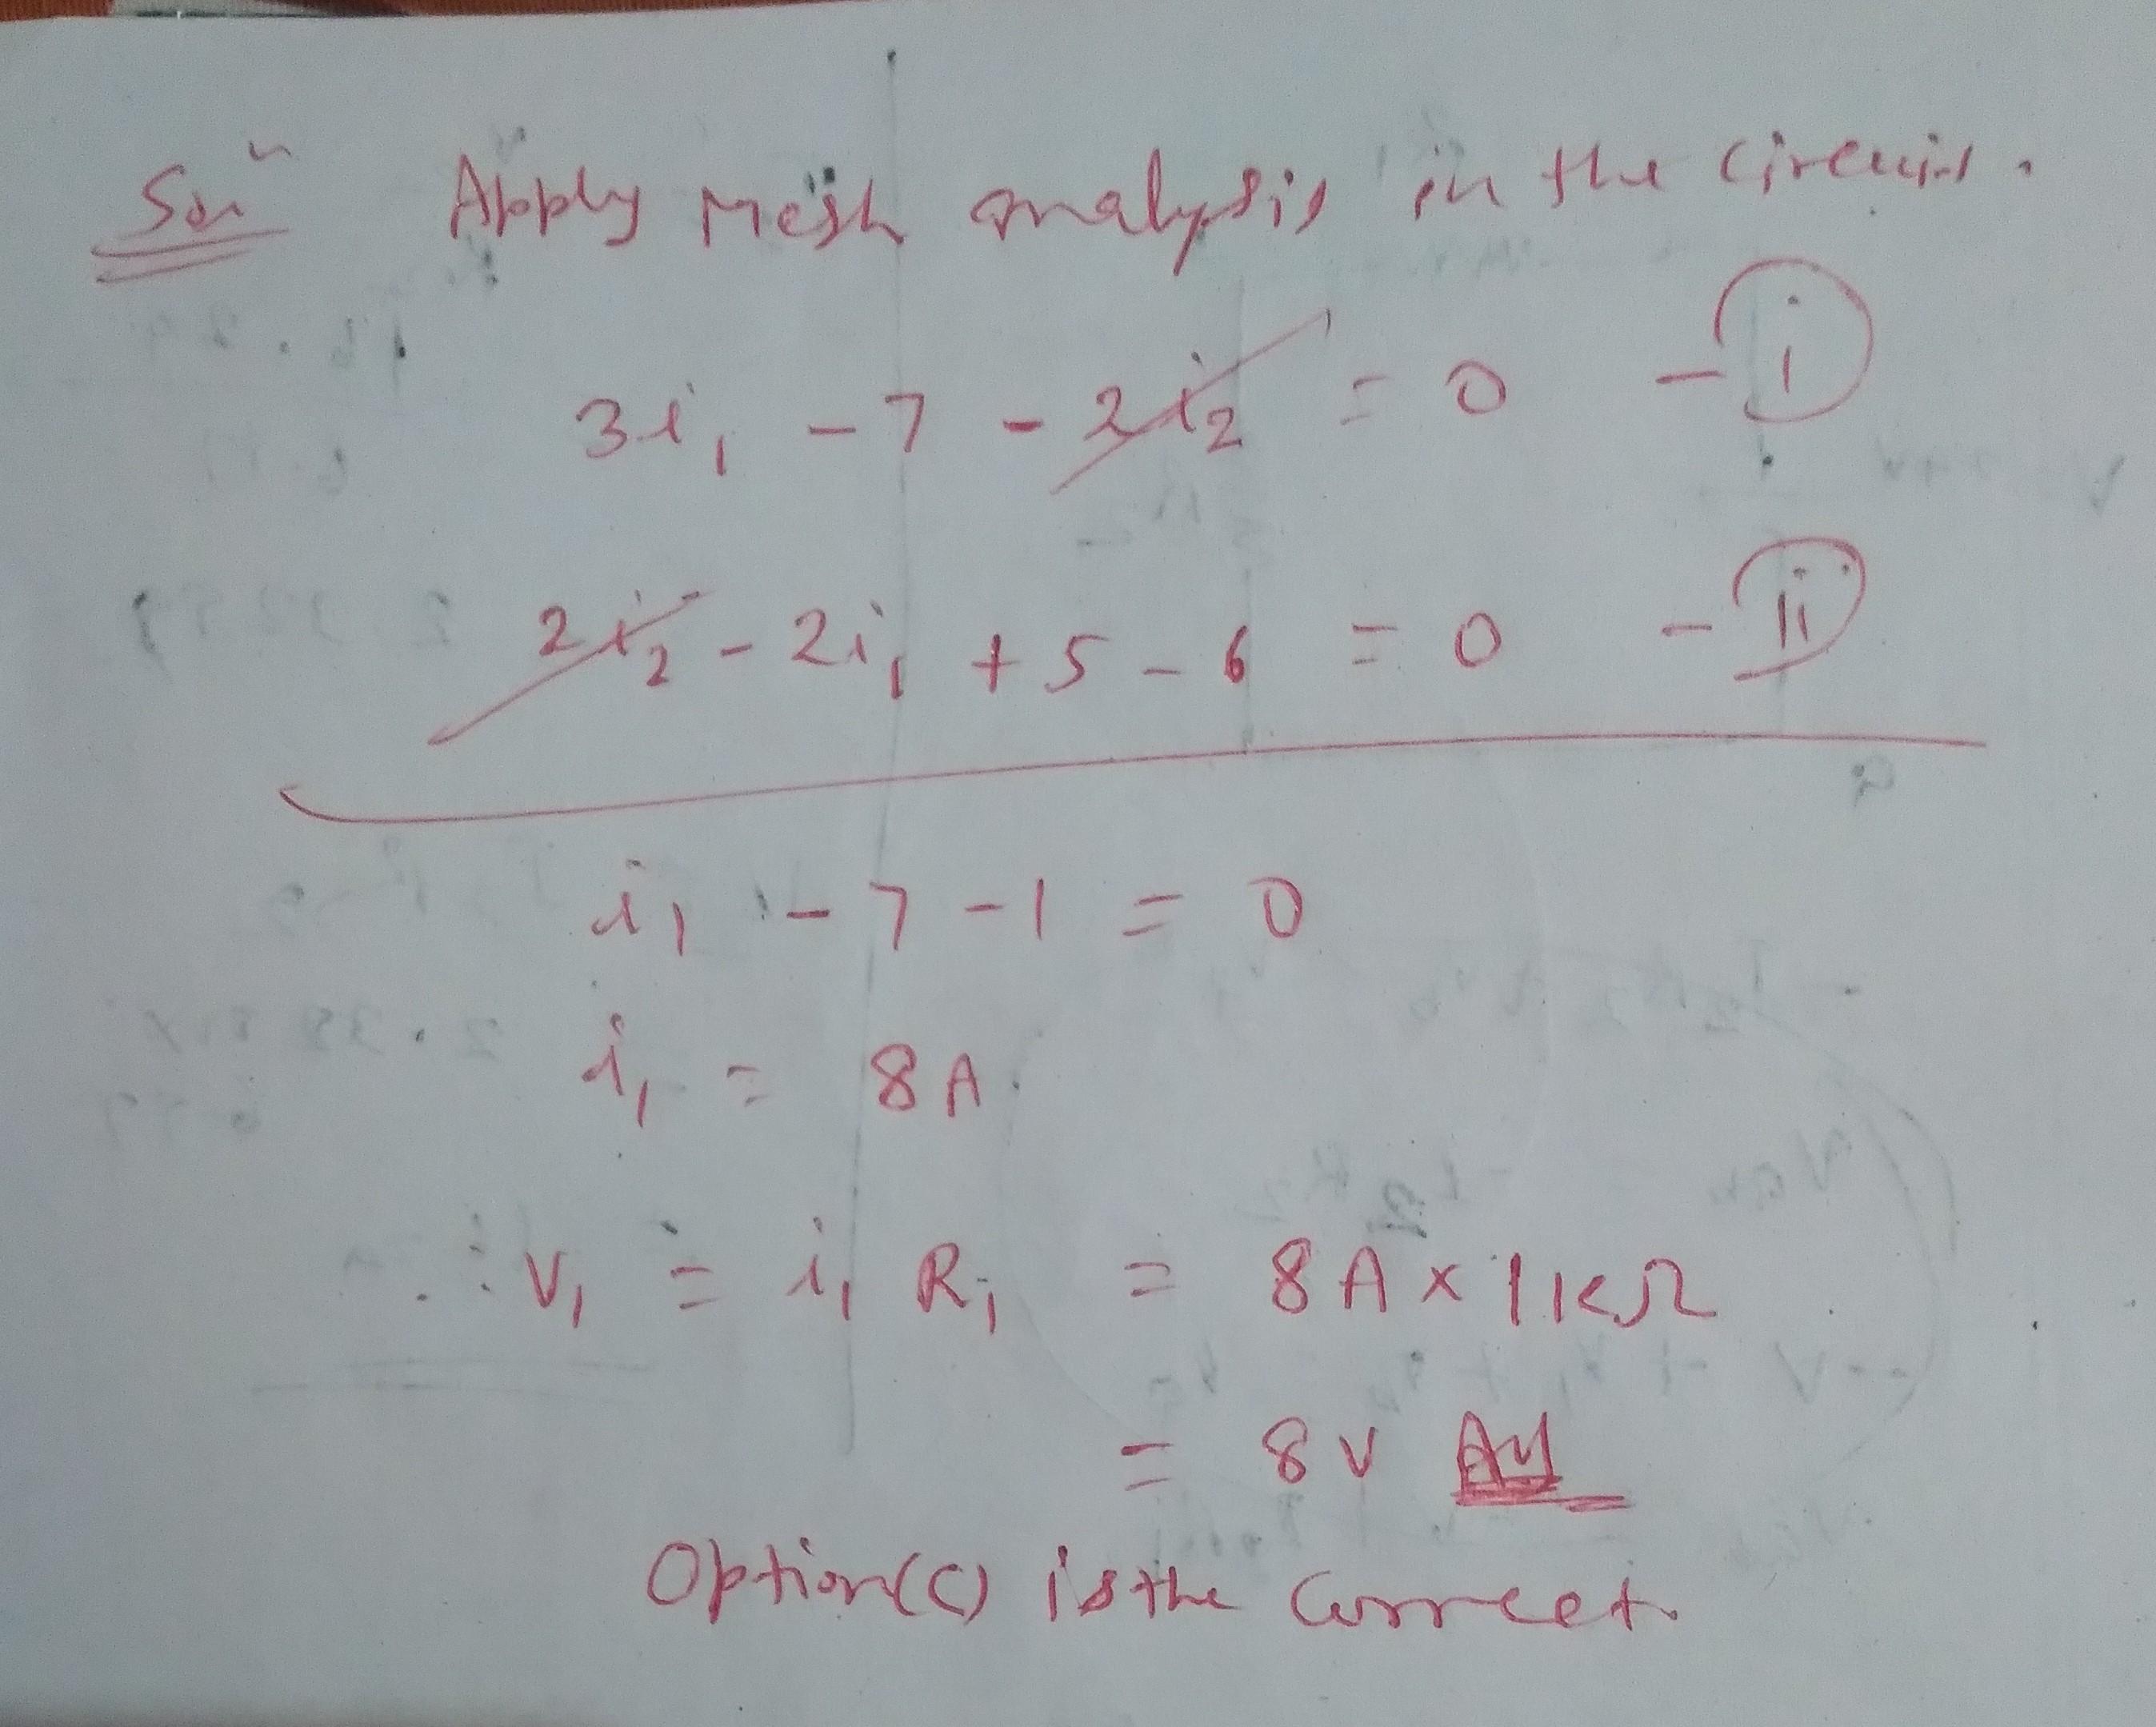 Soln Apply Mesh analysis in the circuit.
3i1 - 7 - 2i2 = 0 - (i)
2i2 - 2i1 + 5 - 6 = 0 - (ii)
i1 - 7 - 1 = 0
i1 = 8A
∴ V1 = i1 R1 = 8A × 1KΩ
= 8V Ans
Option(C) is the Correct.